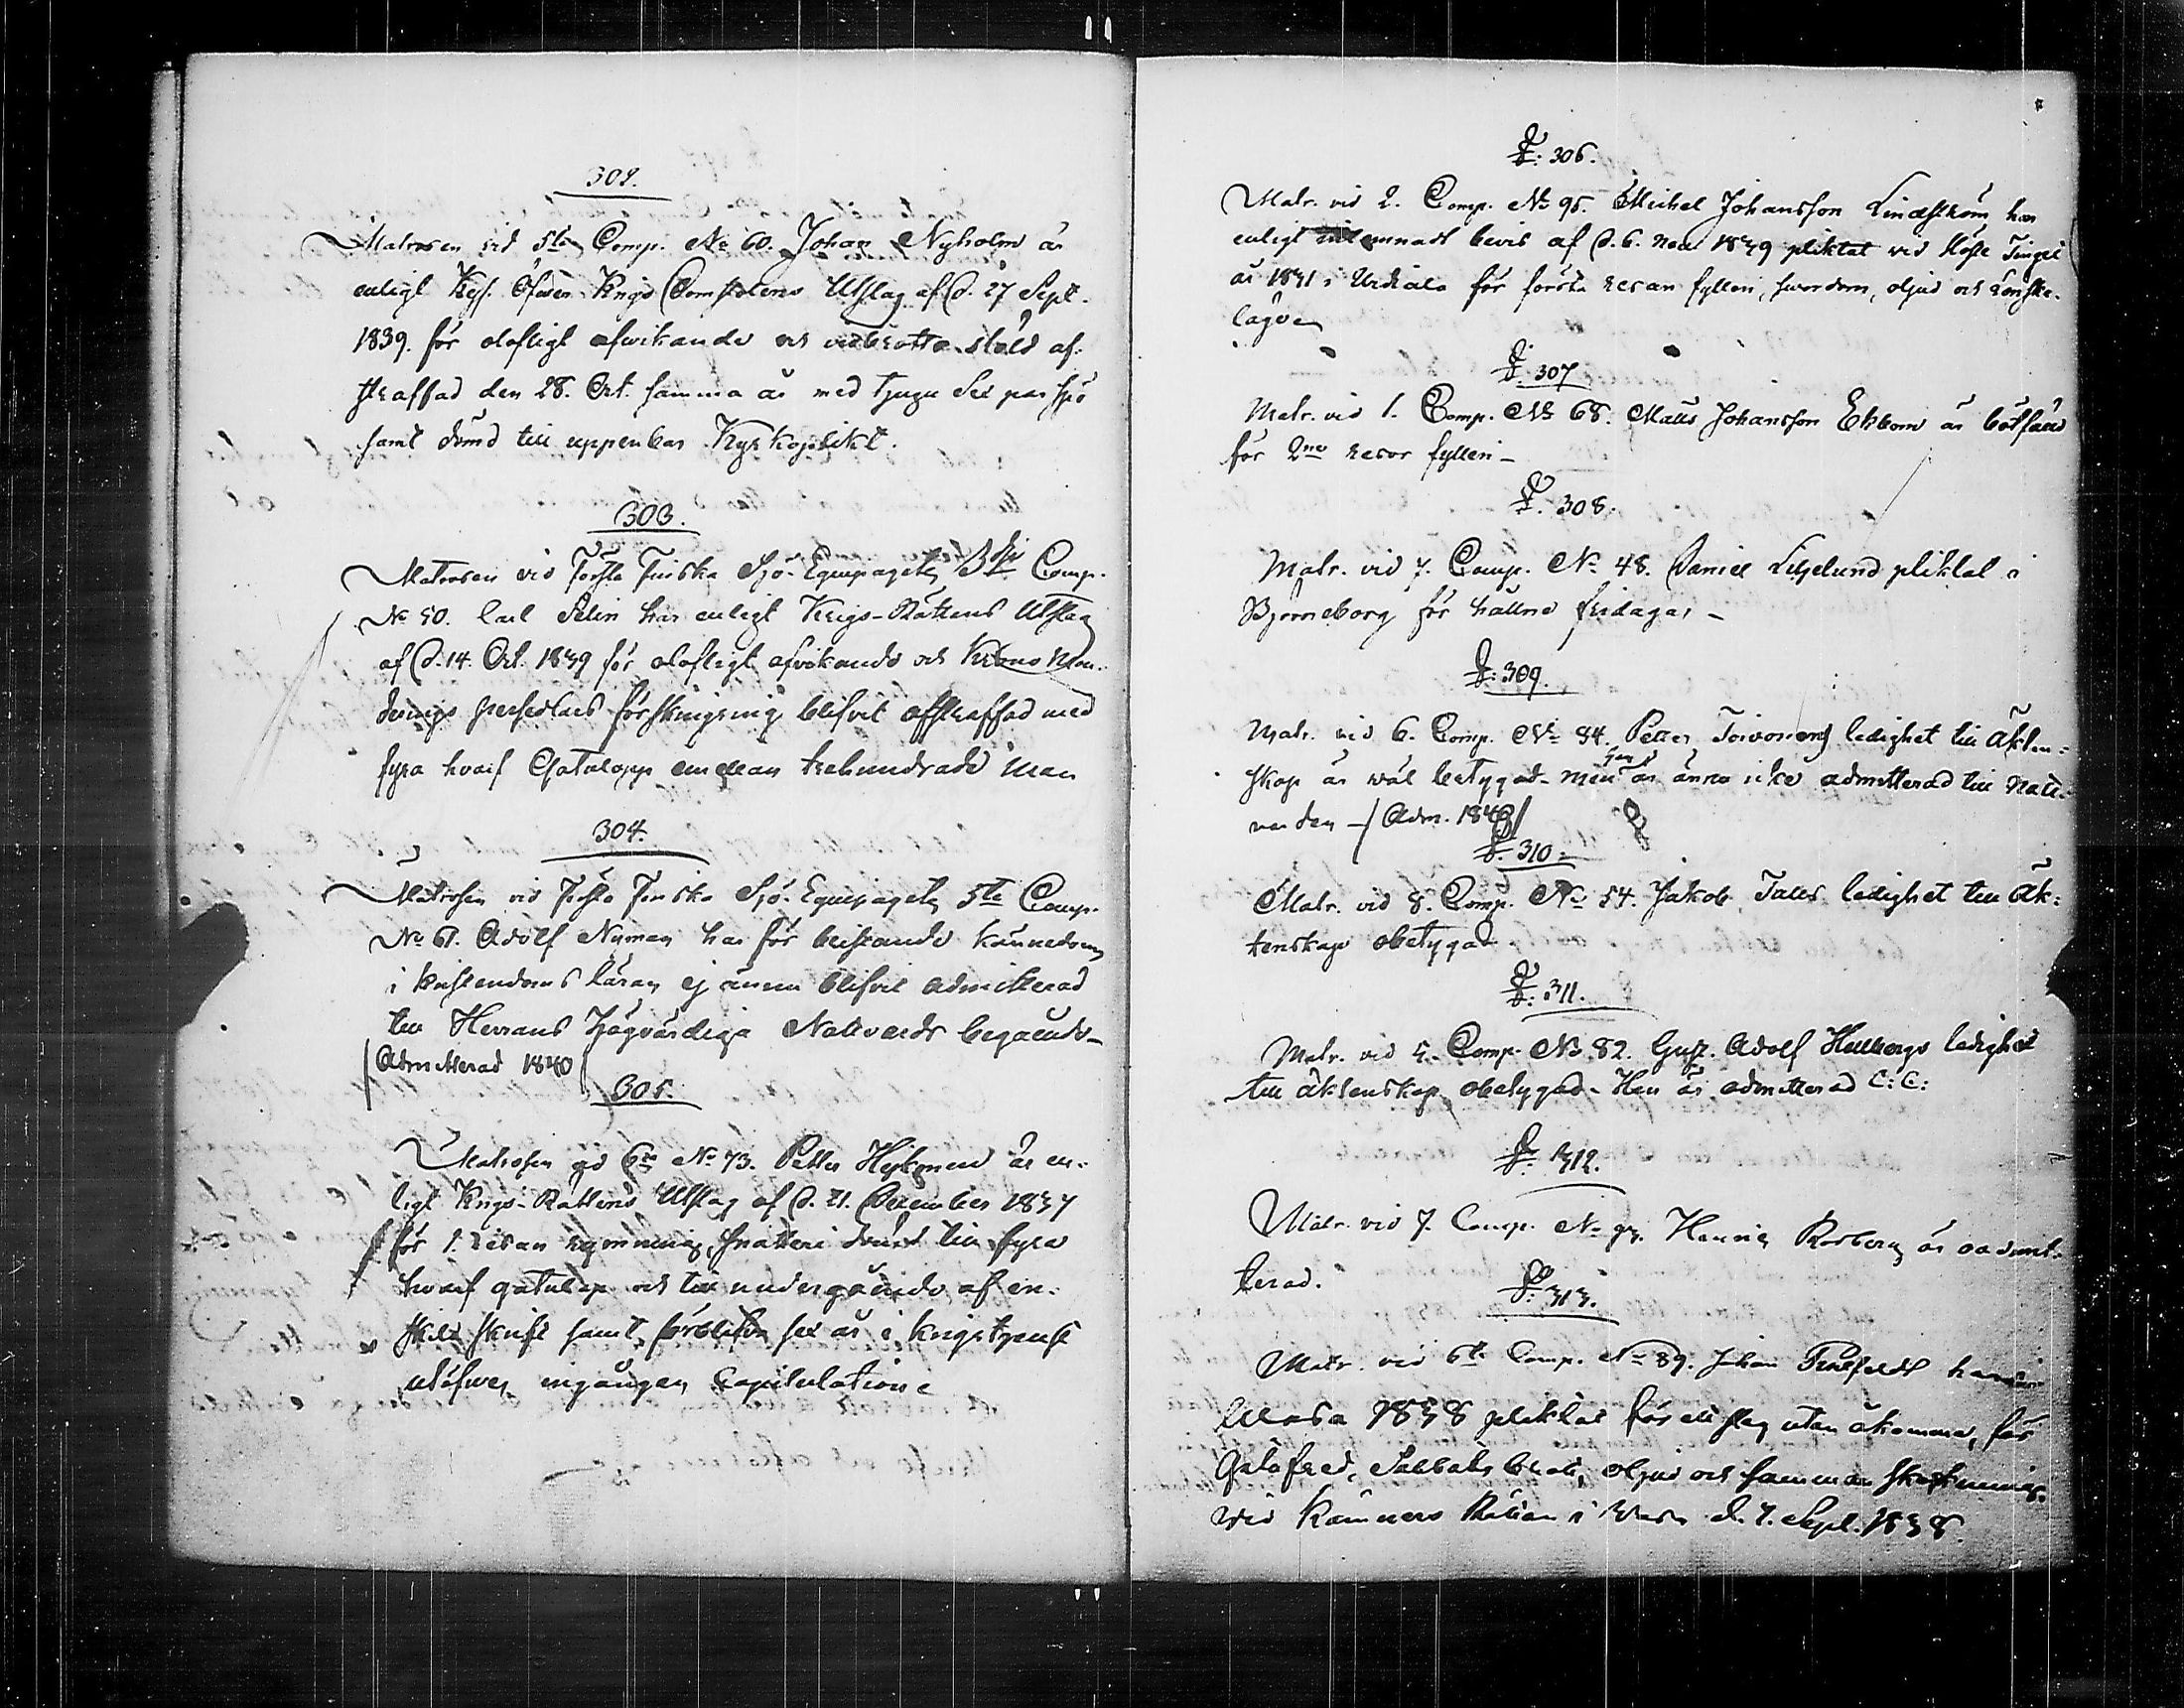 302.
Matrosen vid 5te Comp. No 60. Johan Nyholm är
enligt Kejs. Öfver Krigs Domstolens Utslag af d. 27 Sept.
1839. för olofligt afvikande och stöld af-
straffad den 28. Oct. samma år med tjugu Sex par spö
samt dömd till uppenbar Kyrkoplikt.
303.
Matrosen vid Första Finska Sjö-Equipagets 3dje Comp.
No 50. Carl Selin har enligt Krigs-Rättens Utslag
af d. 14. Oct. 1839 för olofligt afvikande och Krono Mun-
derings persedlars förskingring blifvit afstraffad med
fyra hvarf Gatulopp emellan trehundrade man
304.
Matrosen vid Första Finska Sjö-Equipagets 5te Comp.
No 61. Adolf Nyman har för bristande kännedom
i Kristendoms läran ej ännu blifvit admitterad
till Herrans Högvärdiga Nattvards begående
Admitterad 1840
305.
Matrosen vid 6te No 73. Petter Heikonen är en-
ligt Krigs-Rättens Utslag af d. 21. December 1837
för 1. resan rymning, snatteri dömd till fyra
hvarf gatulop och till undergående af en-
skild skrift samt sex år i krigstjenst
utöfver ingången Capitulation
§: 306.
Matr. vid 2. Comp. No 95. Michel Johansson Lindström har
enligt inlemnadt bevis af d. 6. Nov 1839 pliktat vid Höst Tinget
år 1831 i Urdiala för första resan fylleri, svordom, oljud och Lönska-
läge
§. 307
Matr. vid 1. Comp. No 68. Matts Johansson Ekbom är botfäld
för 2ne resor fylleri -
§. 308.
Matr. vid 7. Comp. No 48. Daniel Liljelund pliktat i
Björneborg för hållne fridagar -
§: 309.
Matr. vid 6. Comp. No 84. Petter Toivonens ledighet till äkten-
skap är wäl betygad - men han är ännu icke admitterad till Natt-
varden - / Adm. 1840 /
§. 310.
Matr. vid 8. Comp. No 54. Jakob ledighet till äk-
tenskap obetygad.
§: 311.
Matr. vid 5. Comp. No 82. Gust. Adolf Hellbergs ledighet
till äktenskap obetygad - Han är admitterad C: C:
§: 312.
Matr. vid 7. Comp. No Henric Rosberg är oadmit-
terad.
§: 313.
Matr. vid 6te Comp. No 89. Johan har i
Wasa 1838 pliktat för ett slag utan åkomma, för
Gatofred, Sabbats brott, oljud och sammanskockning
vid Kämners Rätten i Wasa d. 7. Sept. 1838.